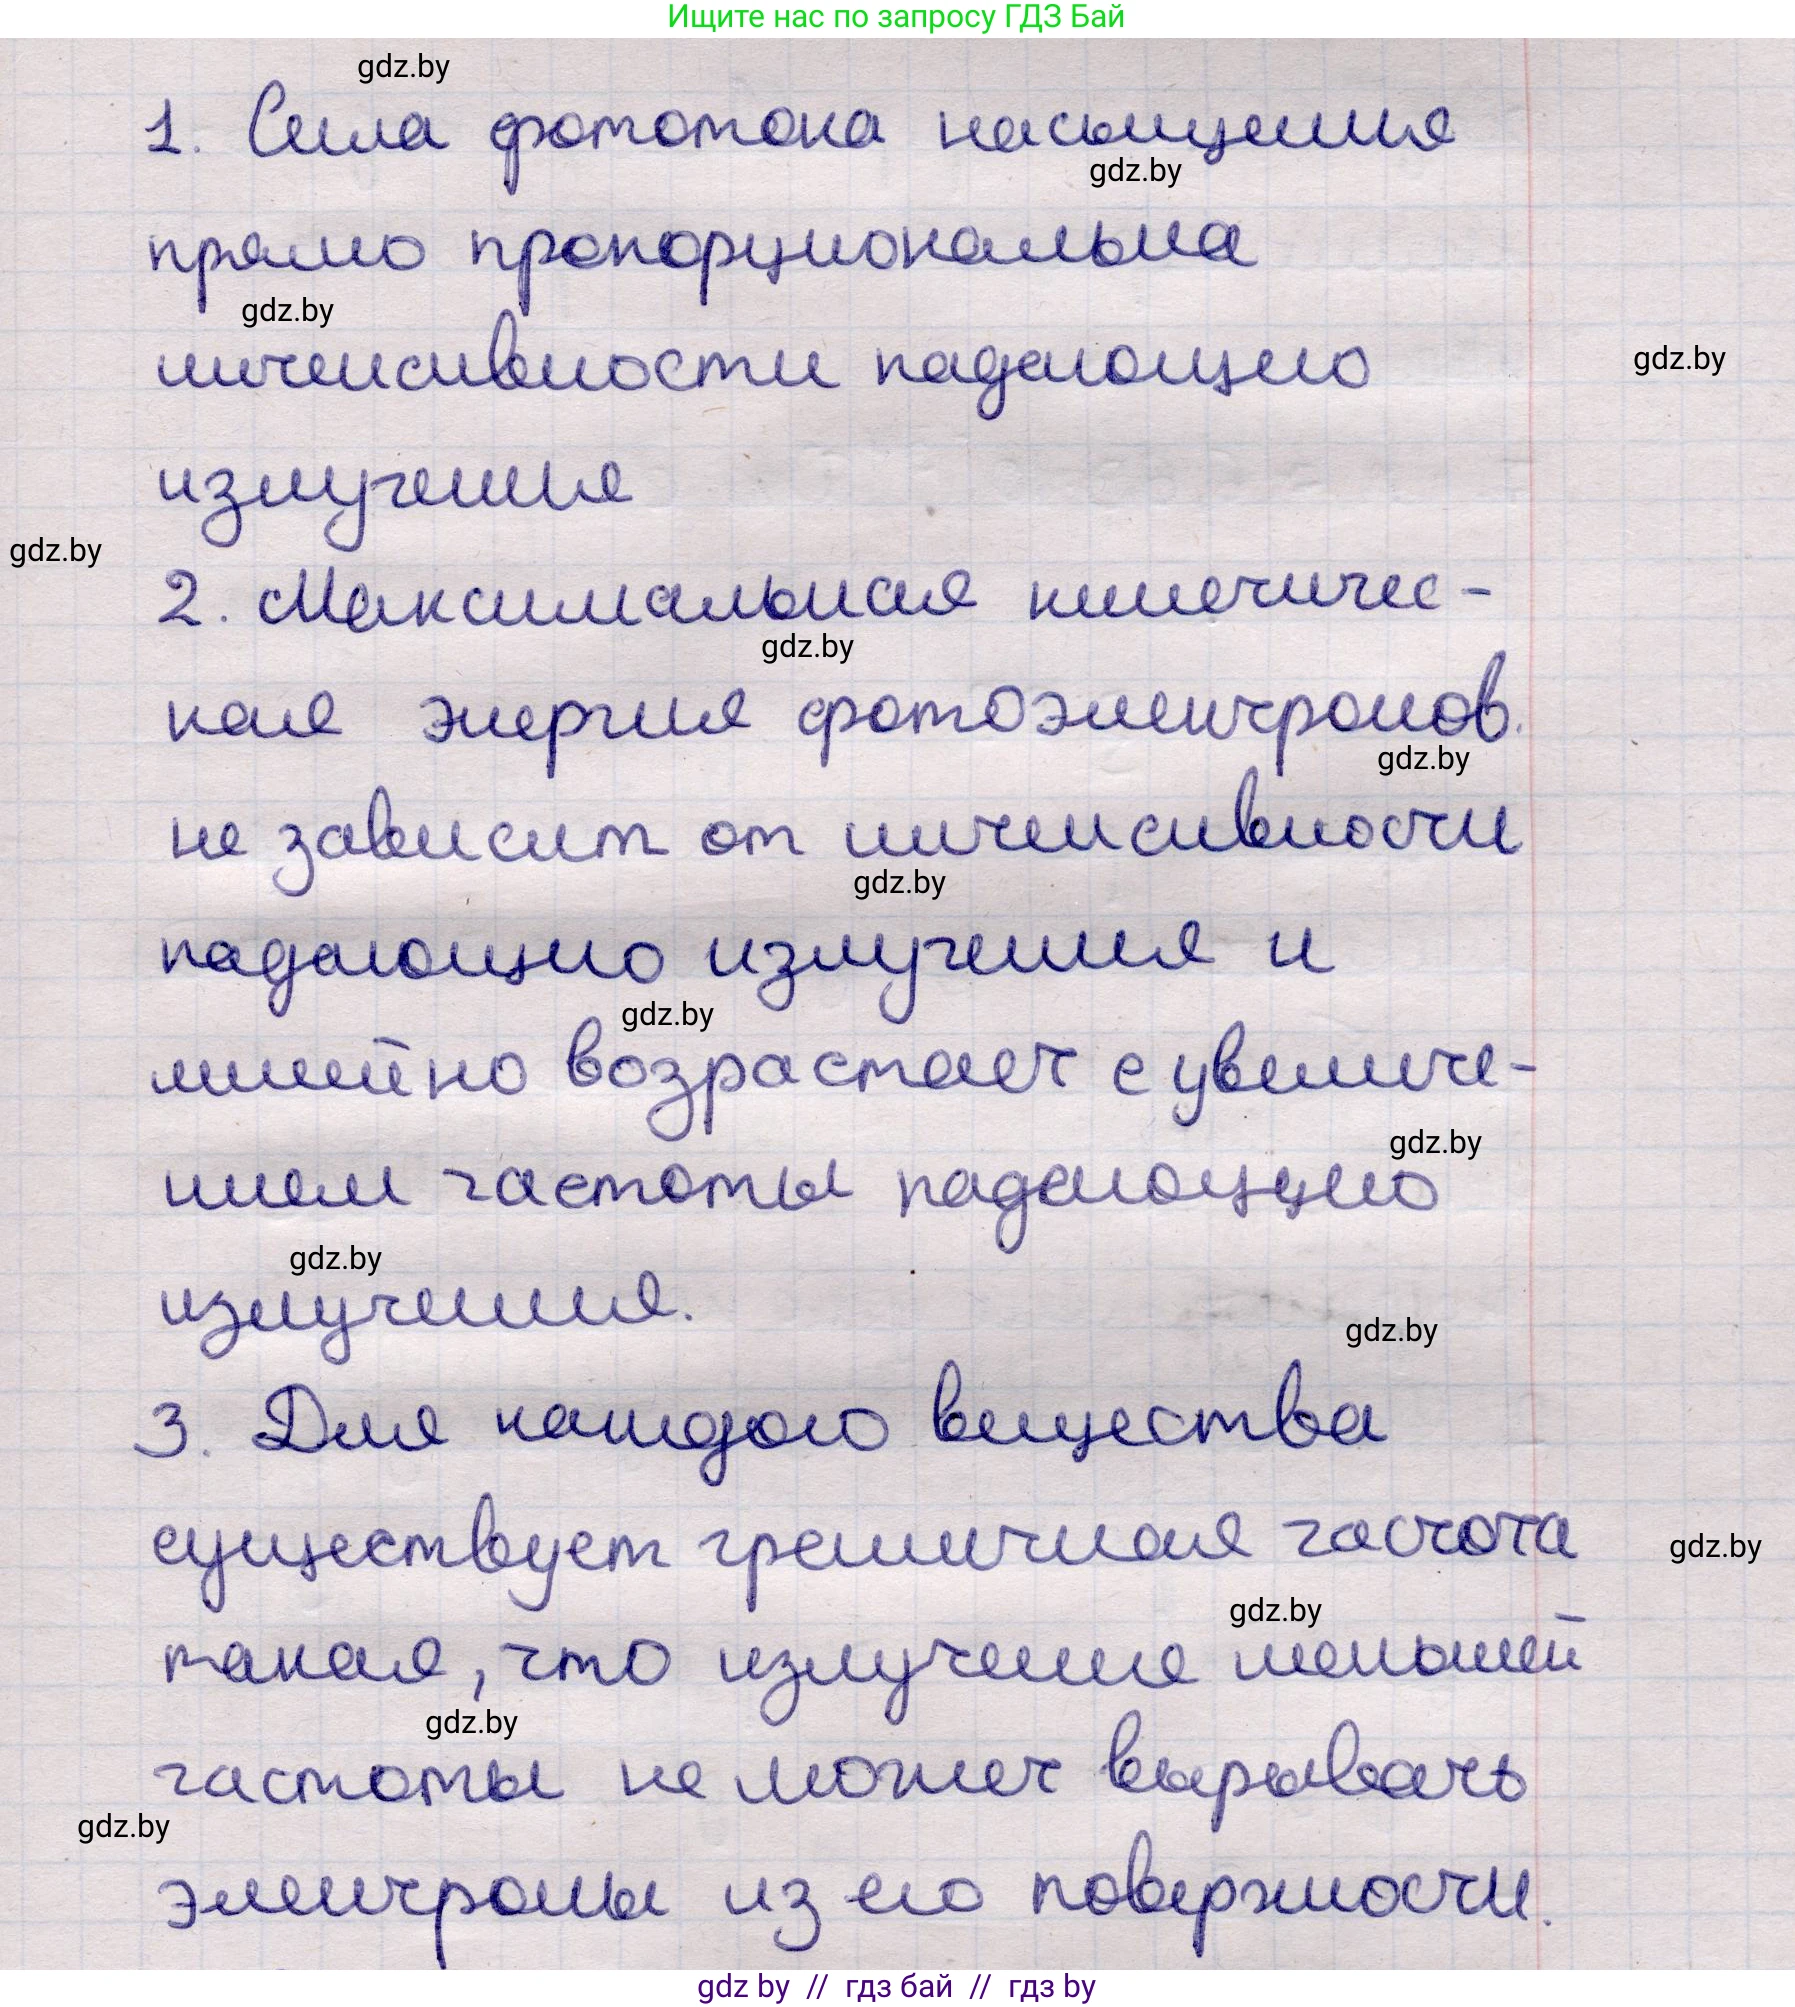 Ищите нас по запросу ГДЗ Бай
gdz.by
1. Сила фототока насыщения
gdz.by
прямо пропорциональна
gdz.by
интенсивности падающего
gdz.by
излучения
gdz.by
2. Максимальная кинетичес-
gdz.by
кая энергия фотоэлектронов
gdz.by
не зависит от интенсивности
gdz.by
падающего излучения и
gdz.by
линейно возрастает с увеличе-
gdz.by
нием частоты падающего
gdz.by
излучения.
gdz.by
3. Для каждого вещества
существует граничная частота
gdz.by
gdz.by
такая, что излучение меньшей
gdz.by
частоты не может вырывать
gdz.by
электроны из его поверхности.
gdz by // гдз бай // гдз by